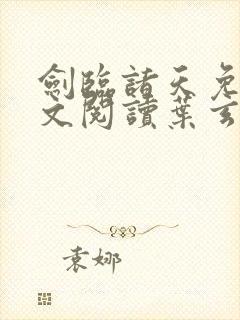 劍臨諸天免
文閱讀葉玄
袁娜